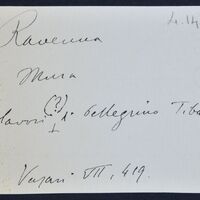 4.14
Ravenna
Mura
lavori (?) di Pellegrino Tiba
Vasari VII, 419.